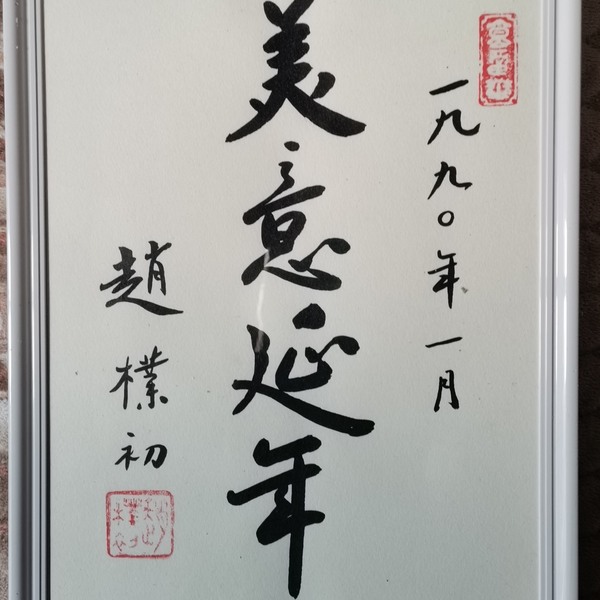 一九九〇年一月
美意延年
趙樸初